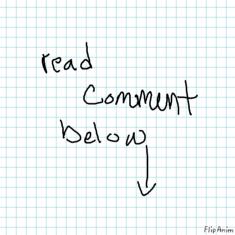 read
Comment
below
FlipAnim